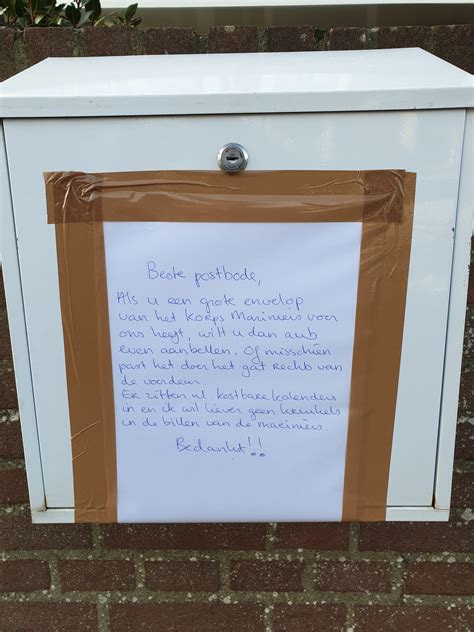 Beste postbode,
Als u een grote envelop
van het Korps Mariniers voor
ons heeft, wilt u dan aub
even aanbellen. Of misschien
past het door het gat rechts van
de voordeur.
Er zitten nl. kostbare kalenders
in en ik wil liever geen kreukels
in de billen van de mariniers.
Bedankt!!